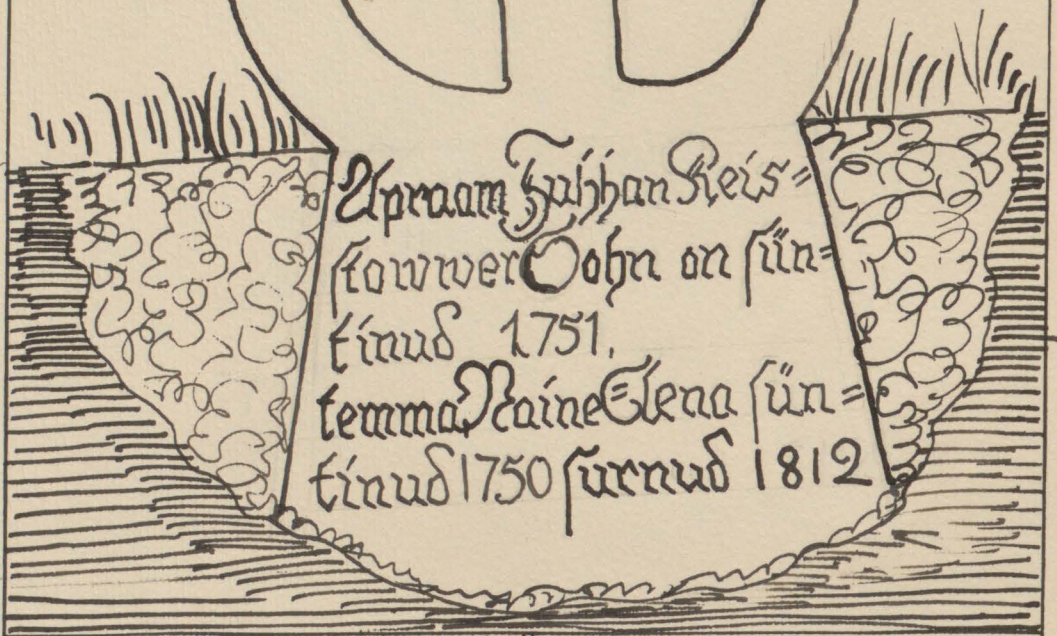 Apraam Juhhan Reis=
stowwer Sohn on sün=
tinud 1751.
temma Naine Elena sün=
tinud 1750 surnud 1812